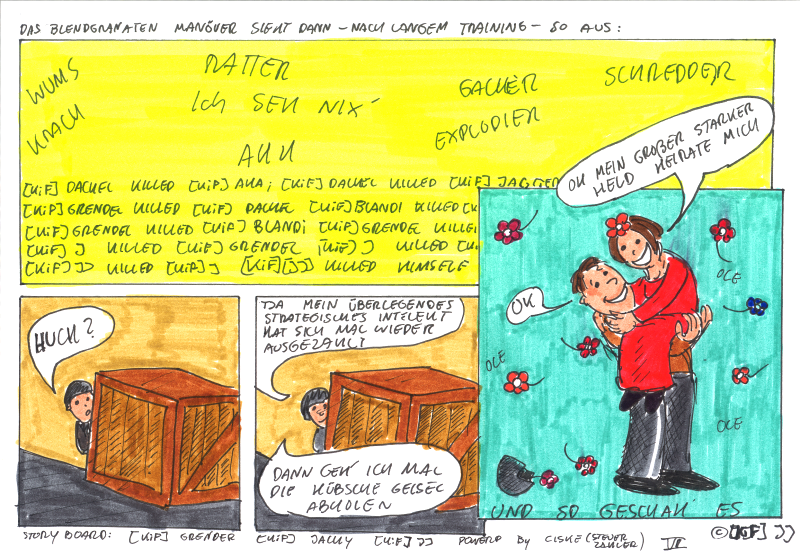 DAS BLENDGRANATEN MANÖVER SIEHT DANN - NACH LANGEM TRAINING - SO AUS:
WUMS
KRACH
RATTER
ICH SEH NIX
AHH
GACKER
EXPLODIER
SCHREDDER
[KiF] DACKEL KILLED [KiF] AHA; [KiF] DACKEL KILLED [KiF] JAGGER
[KiF] GRENDEL KILLED [KiF] DACKEL [KiF] BLANDI KILLED [K
[KiF] GRENDEL KILLED [KiF] BLANDI [KiF] GRENDEL KILLED
[KiF] JJ KILLED [KiF] GRENDEL [KiF] JJ KILLED [Ki
[KiF] JJ KILLED [KiF] JJ [KiF] JJ KILLED HIMSELF
OH MEIN GROßER STARKER
HELD HEIRATE MICH
OK
OLE
OLE
OLE
OLE
UND SO GESCHAH ES
HUCH?
TJA MEIN ÜBERLEGENDES
STRATEGISCHES INTELEKT
HAT SICH MAL WIEDER
AUSGEZAHLT
DANN GEH ICH MAL
DIE HÜBSCHE GEISEL
ABHOLEN
STORY BOARD: [KiF] GRENDEL [KiF] JACKY [KiF] JJ POWERED BY CISKE (STEUER
ZAHLER) VII © [KiF] JJ